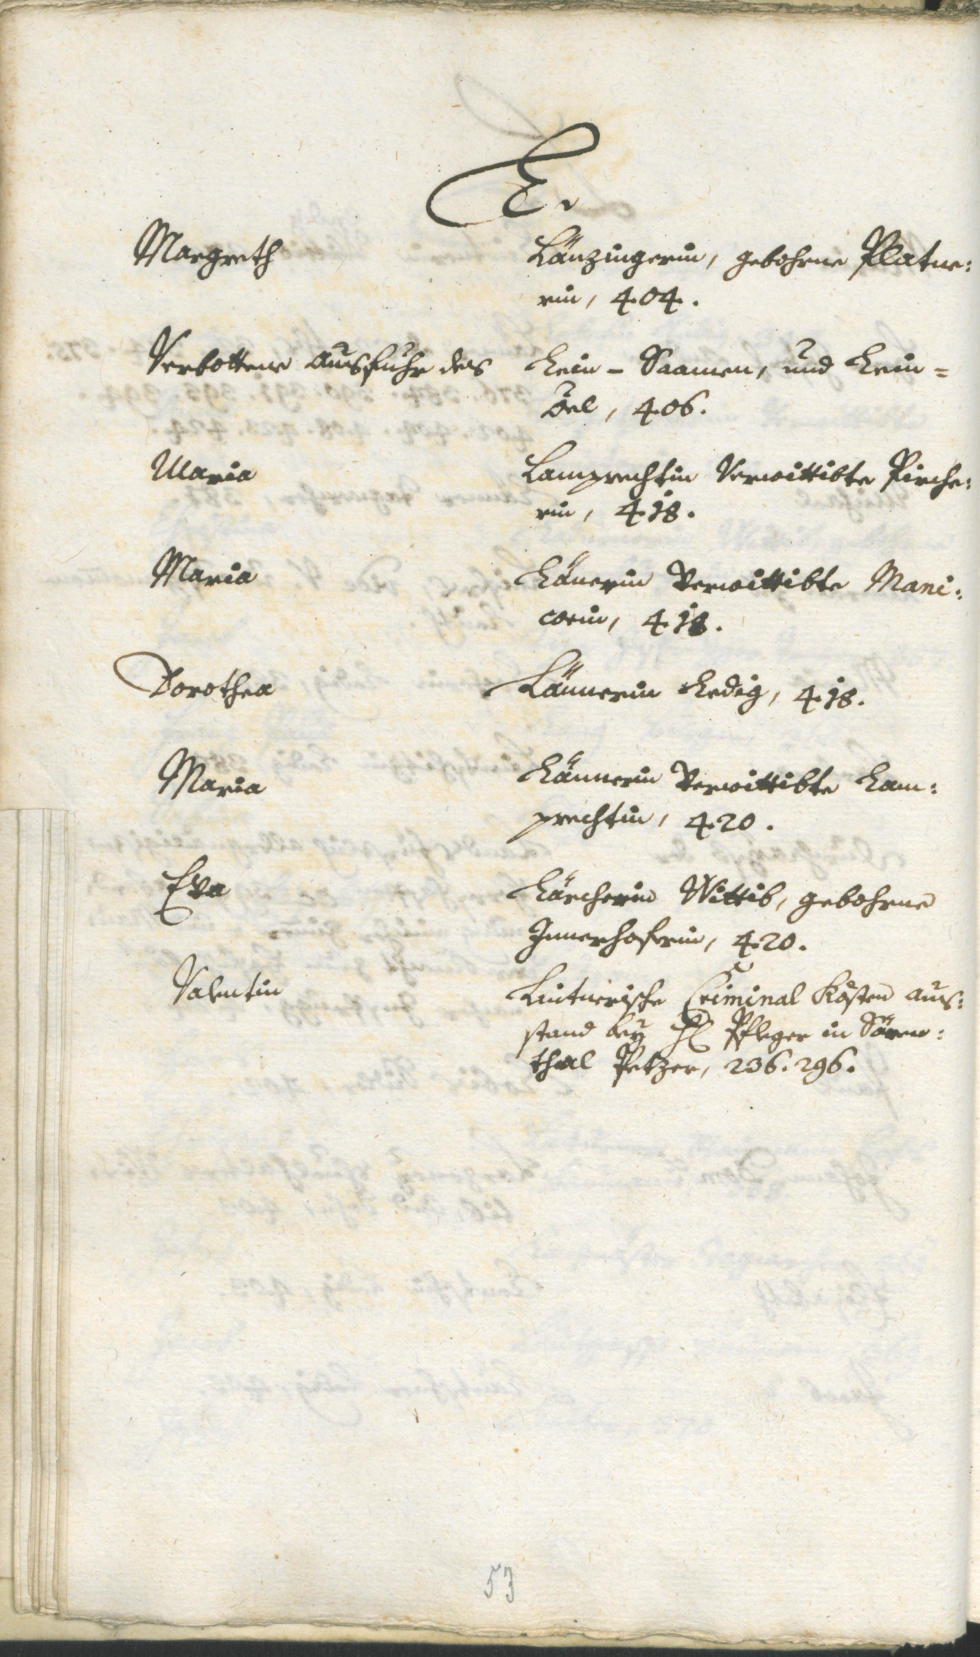 L.
Margreth Länzingerin, gebohrne Platne:
rin, 404.
Verbottene Ausfuhr des Lein - Saamen, und Lein =
öel, 406.
Maria Lamprechtin Verwittibte Pirche:
rin, 418.
Maria Länerin Verwittibte Mani:
corin, 418.
Dorothea Lännerin Ledig, 418.
Maria Lännerin Verwittibte Lam:
prechtin, 420.
Eva Lärcherin Wittib, gebohrne
Innerhoferin, 420.
Valentin Lintnerische Criminal Kösten aus:
stand bey H Pfleger in Sären:
thal Petzer, 236. 296.
53